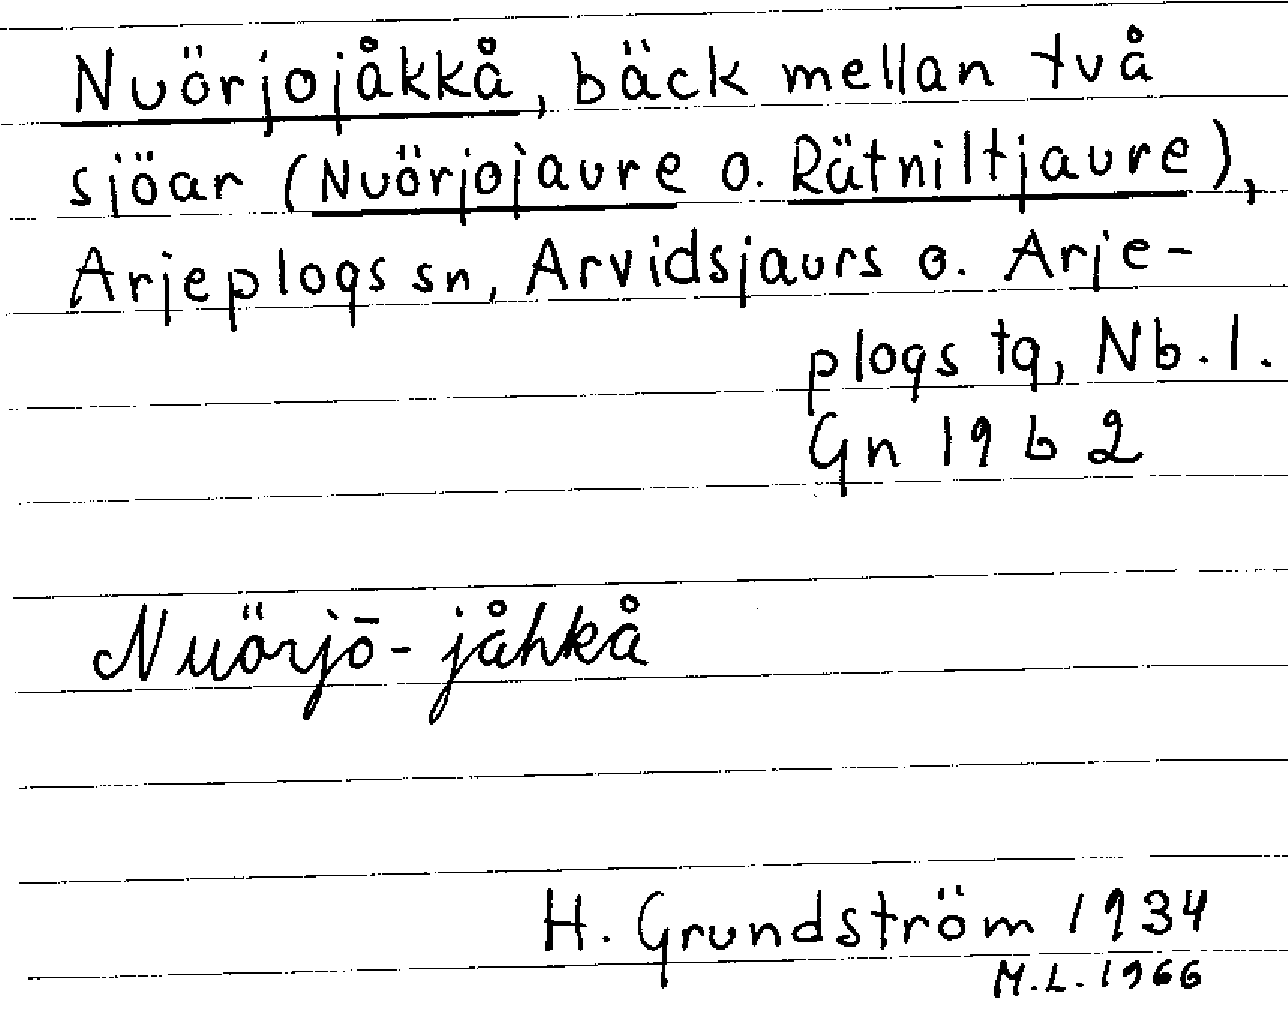 Nuörjojåkkå, bäck mellan två
sjöar (Nuörjojaure o. Rätniltjaure),
Arjeplogs sn, Arvidsjaurs o. Arje-
plogs tg, Nb. l.
Gn 19 b 2
Nuörjō-jåhkå
H. Grundström 1934
M.L. 1966